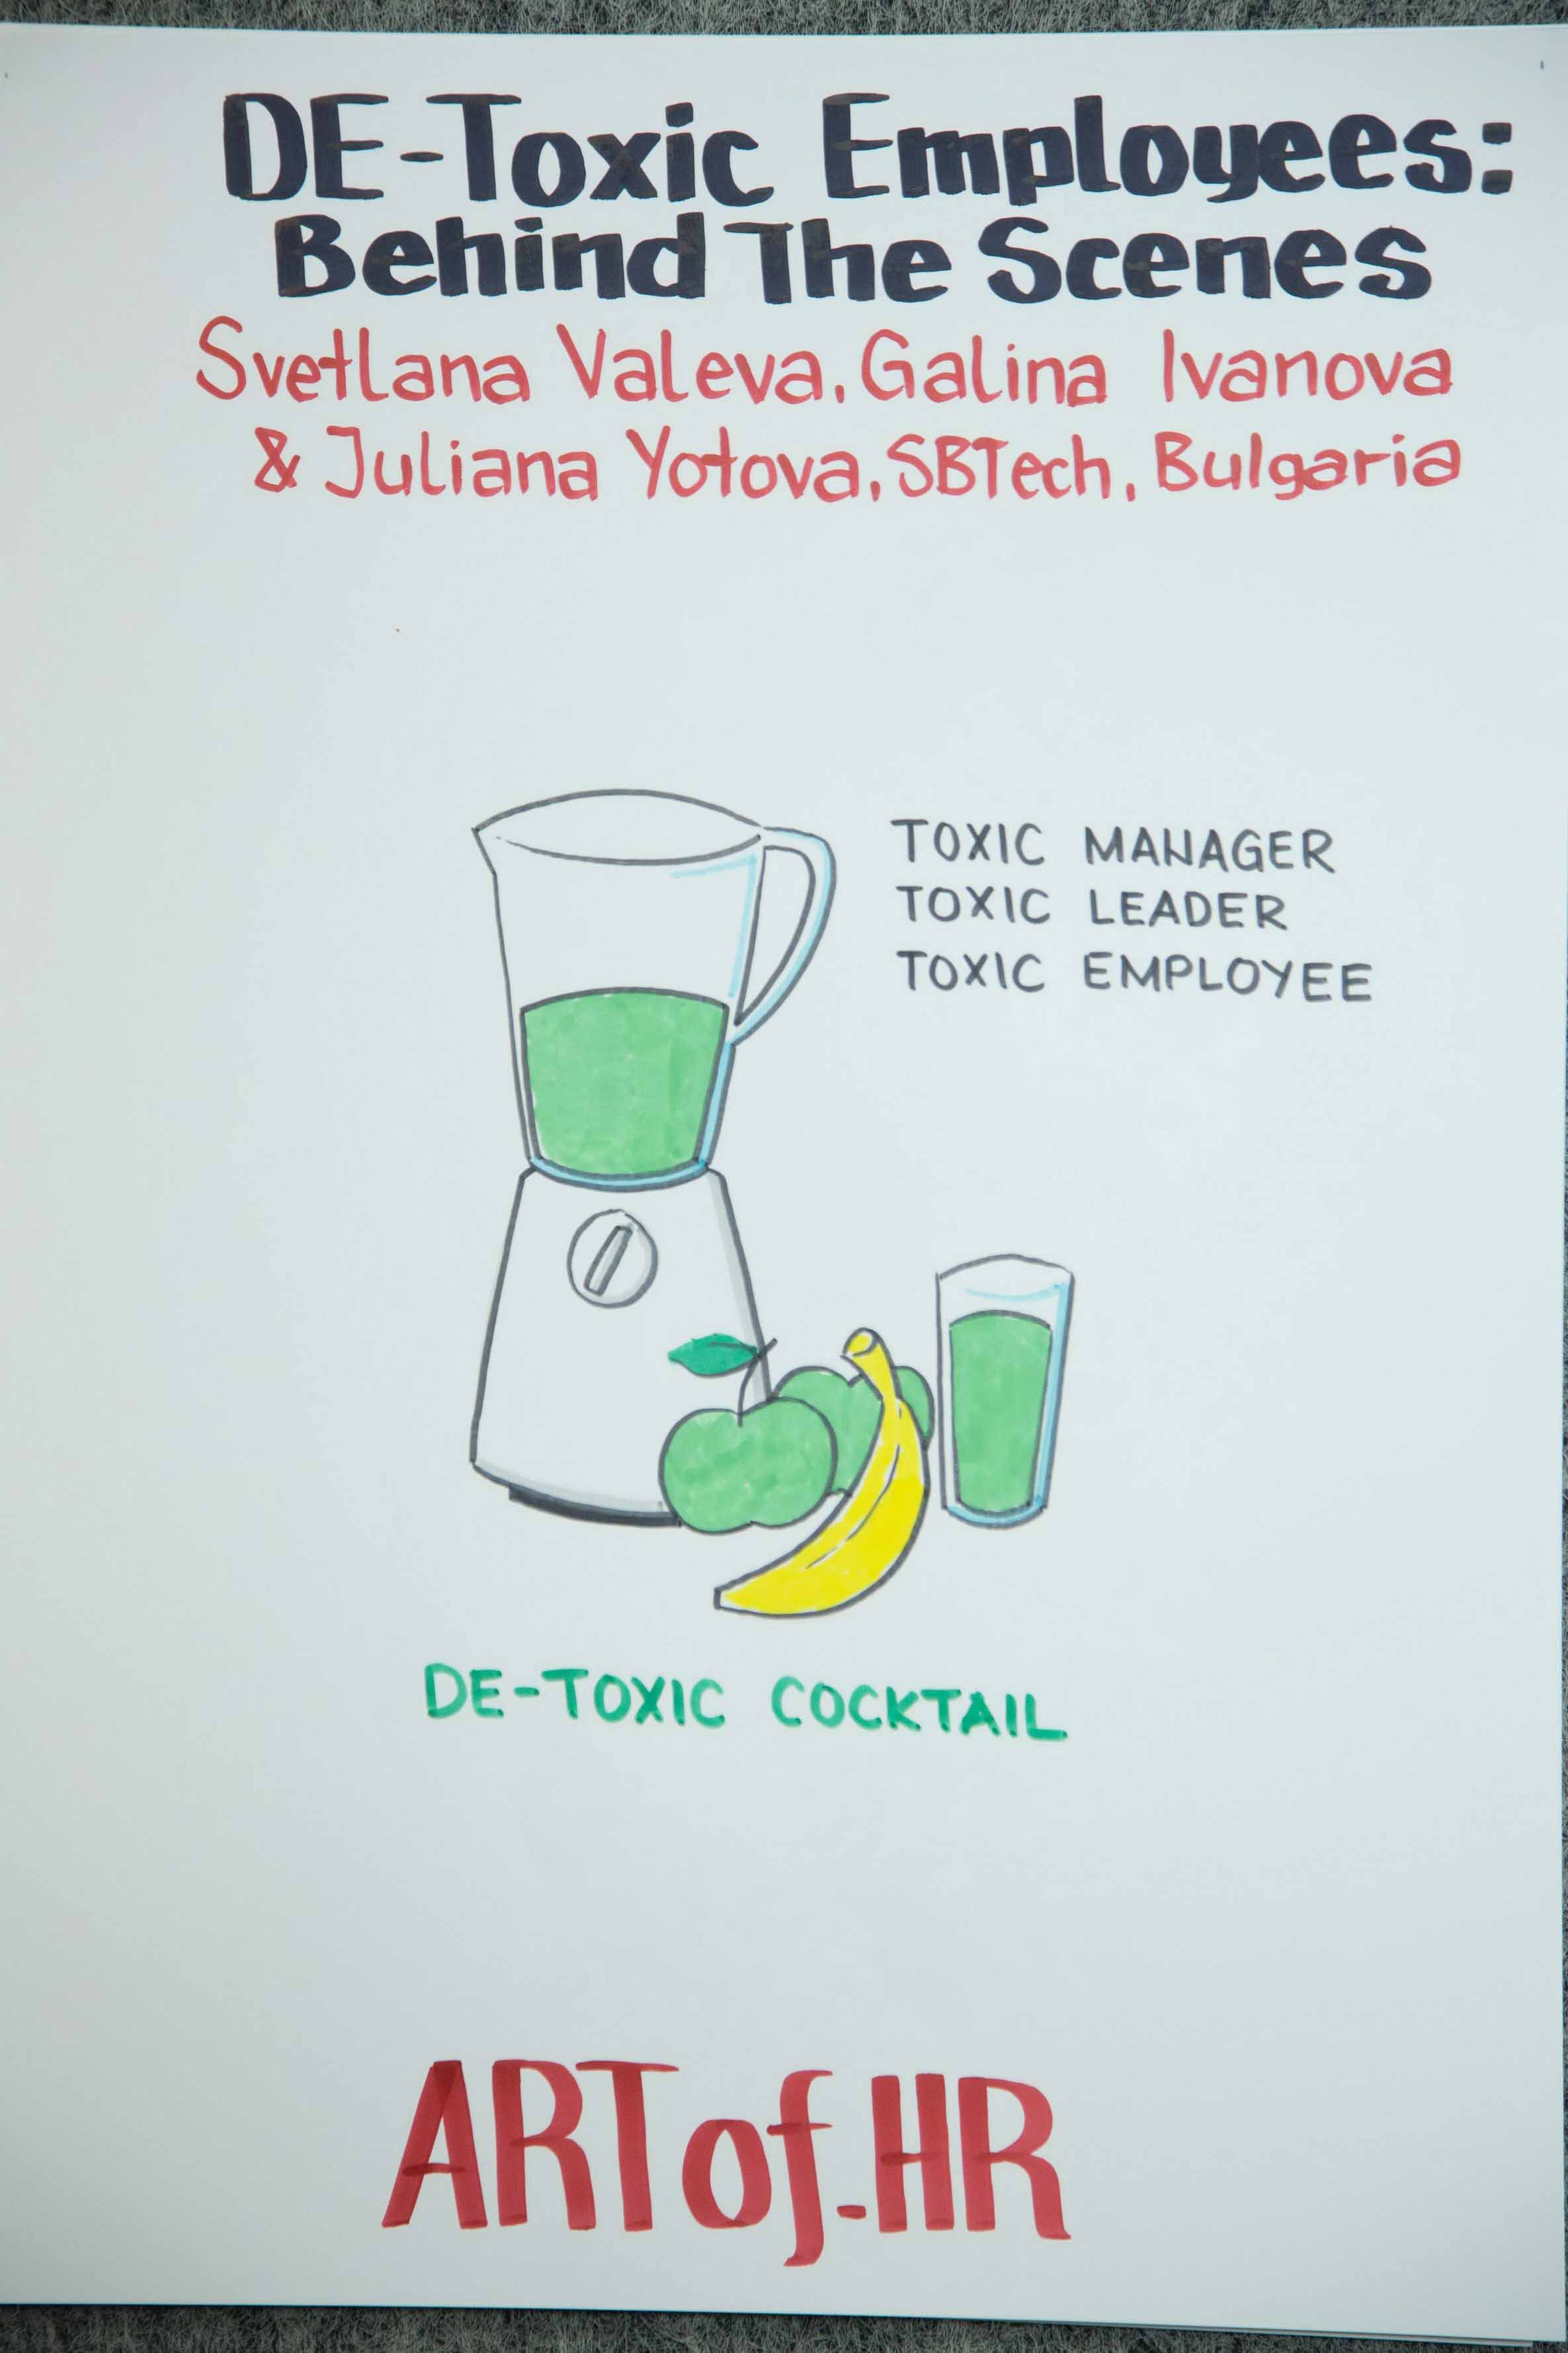 DE-Toxic Employees:
Behind The Scenes
Svetlana Valeva, Galina Ivanova
& Juliana Yotova, SBTech, Bulgaria
TOXIC MANAGER
TOXIC LEADER
TOXIC EMPLOYEE
DE-TOXIC COCKTAIL
ARTof.HR